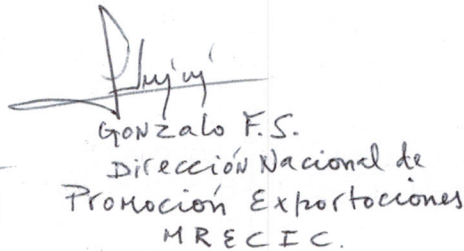 GONZALO F.S.
Dirección Nacional de
Promoción Exportaciones
MRECIC.